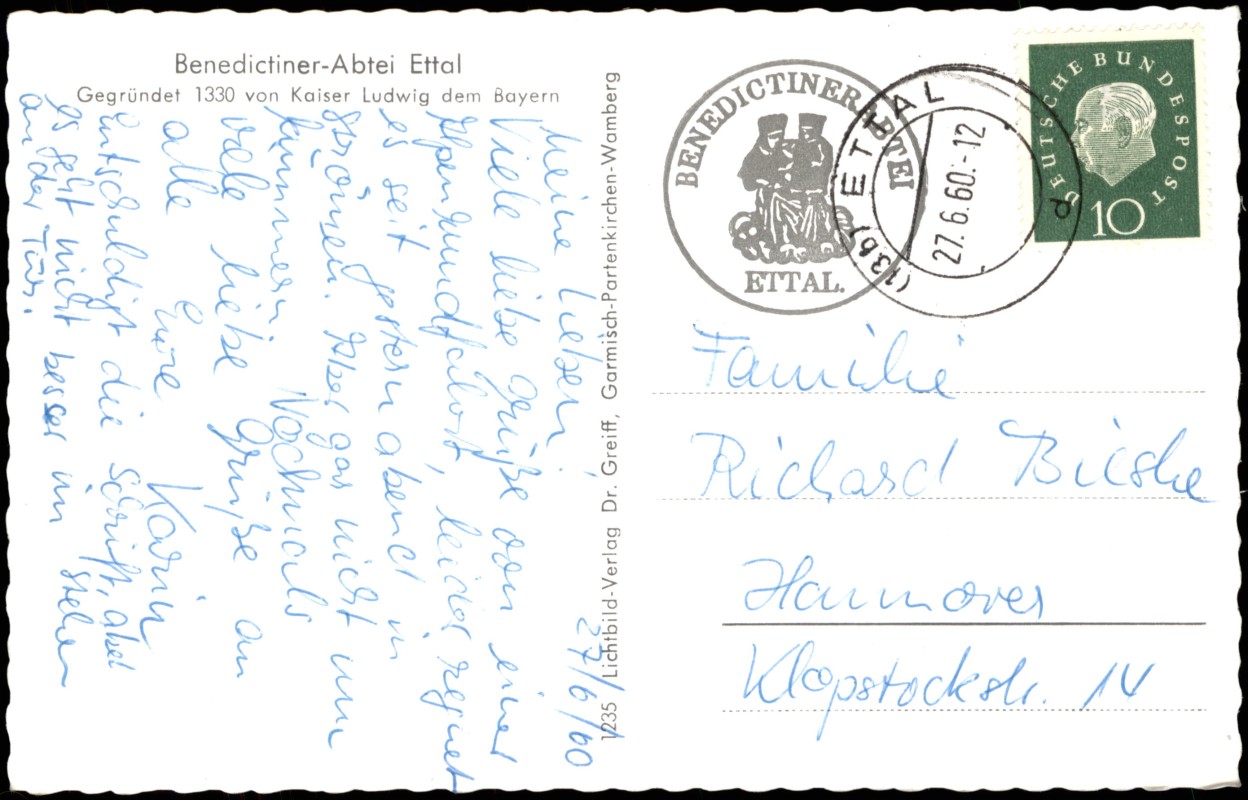 Benedictiner-Abtei Ettal
Gegründet 1330 von Kaiser Ludwig dem Bayern
27/6/60
Meine Lieben!
Viele liebe Grüße von einer
Alpenrundfahrt, leider regnet
es seit gestern abend in
Strömen. Aber gar nicht um
kümmern. Nochmals
viele liebe Grüße an
alle
Eure Karin
Entschuldigt die Schrift, aber
es geht nicht besser im Stehen
an der Tür.
1235 Lichtbild-Verlag Dr. Greiff, Garmisch-Partenkirchen-Wamberg
BENEDICTINER ABTEI
ETTAL.
(13b) ETTAL
27.6.60.-12
d
DEUTSCHE BUNDESPOST
10
Familie
Richard Bieske
Hannover
Klopstockstr. 14